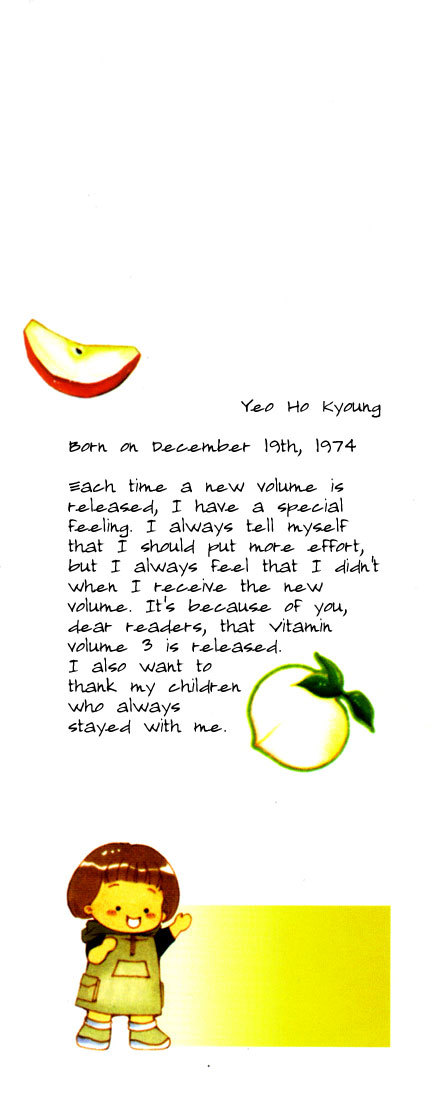 Yeo Ho Kyoung
Born on December 19th, 1974
Each time a new volume is
released, I have a special
feeling. I always tell myself
that I should put more effort,
but I always feel that I didn't
when I receive the new
volume. It's because of you,
dear readers, that Vitamin
volume 3 is released.
I also want to
thank my children
who always
stayed with me.